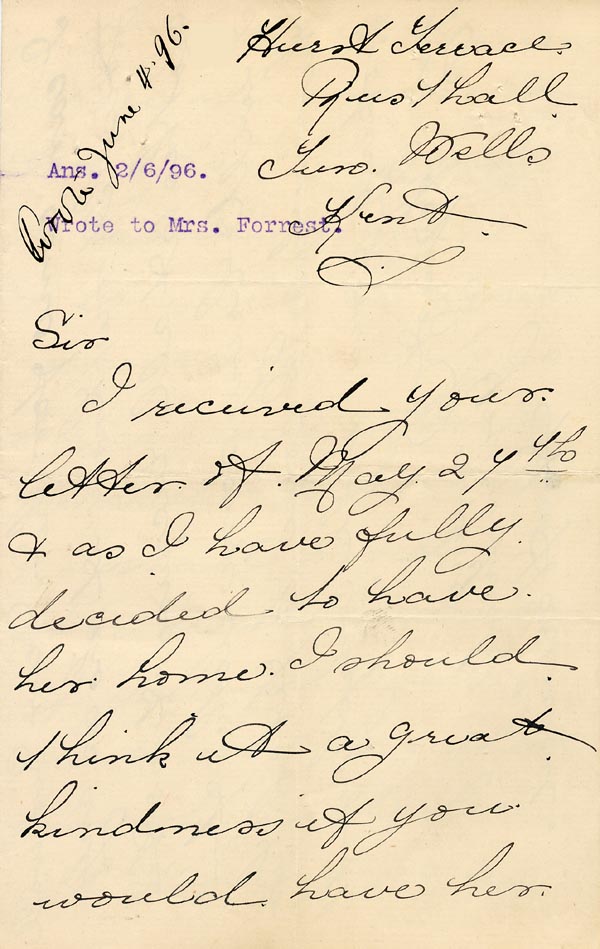 Hurst Terrace
Rusthall
Tun. Wells
Kent.
Wrote June 4. 96.
Ans. 2/6/96.
Wrote to Mrs. Forrest.
Sir
I received your
letter of May 27th
& as I have fully
decided to have
her home. I should
think it a great
kindness if you
would have her